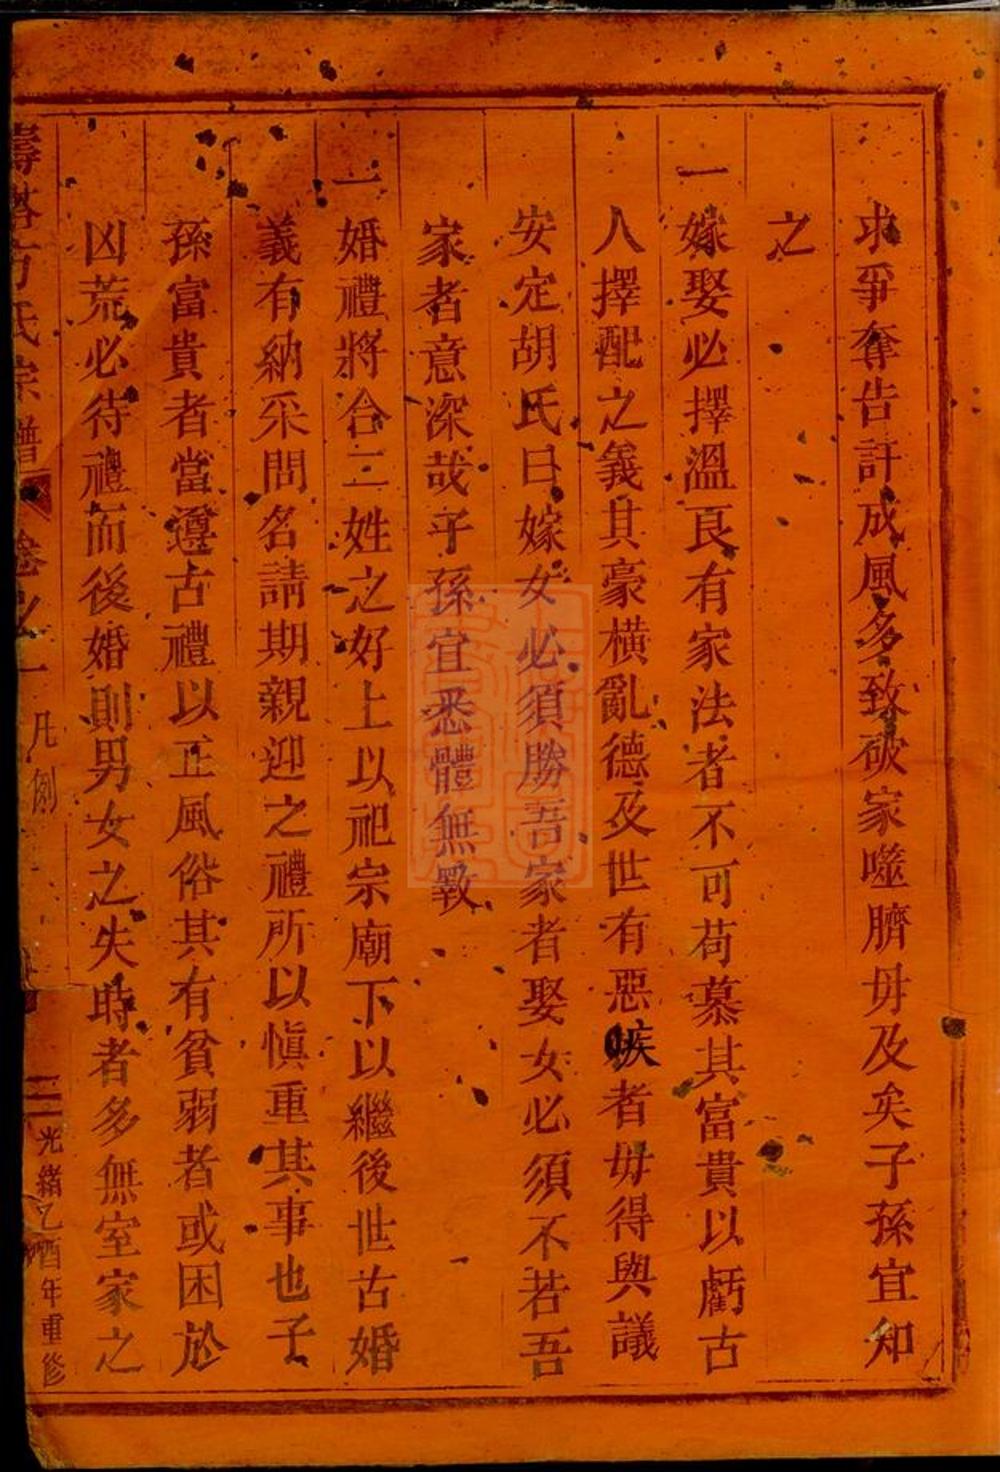 求爭奪告訐成風多致破家噬臍毋及矣子孫宜知
之
一嫁娶必擇溫良有家法者不可苟慕其富貴以虧古
人擇配之義其豪橫亂德及世有惡嫉者毋得與議
安定胡氏曰嫁女必須勝吾家者娶女必須不若吾
家者意深哉子孫宜悉體無斁
一婚禮將合二姓之好上以祀宗廟下以繼後世古婚
義有納采問名請期親迎之禮所以慎重其事也子
孫富貴者當遵古禮以正風俗其有貧弱者或困於
凶荒必待禮而後婚則男女之失時者多無室家之
方氏宗譜 卷之一 凡例 二 光緒乙酉年重修